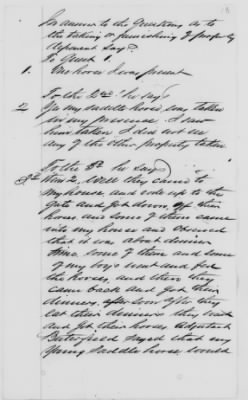 In answer to the Questions as to
the taking or furnishing of property
deponent says
To Quest 1.
1. One horse I was present
To the 2nd he says
2 Yes my saddle horse was taken
in my presence. I saw
him taken I did not see
any of the other property taken
To the 3d he says
3d Well they came to
my house, and rode up to the
gate and got down off their
horses and some of them came
into my house and observed
that it was about dinner
time some of them and some
of my boys went and fed
the horses, and then they
came back and got their
dinners, after soon after they
eat their dinners they went
and got their horses. Adjutant
Butterfield sayed that my
young saddle horse would